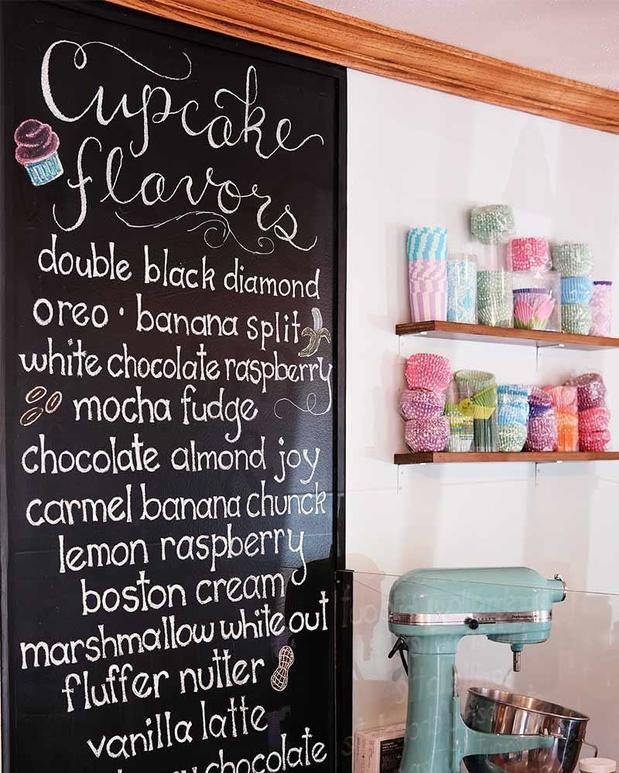 Cupcake
flavors
double black diamond
oreo • banana split
white chocolate raspberry
mocha fudge
chocolate almond joy
carmel banana chunck
lemon raspberry
boston cream
marshmallow white out
fluffer nutter
vanilla latte
chocolate